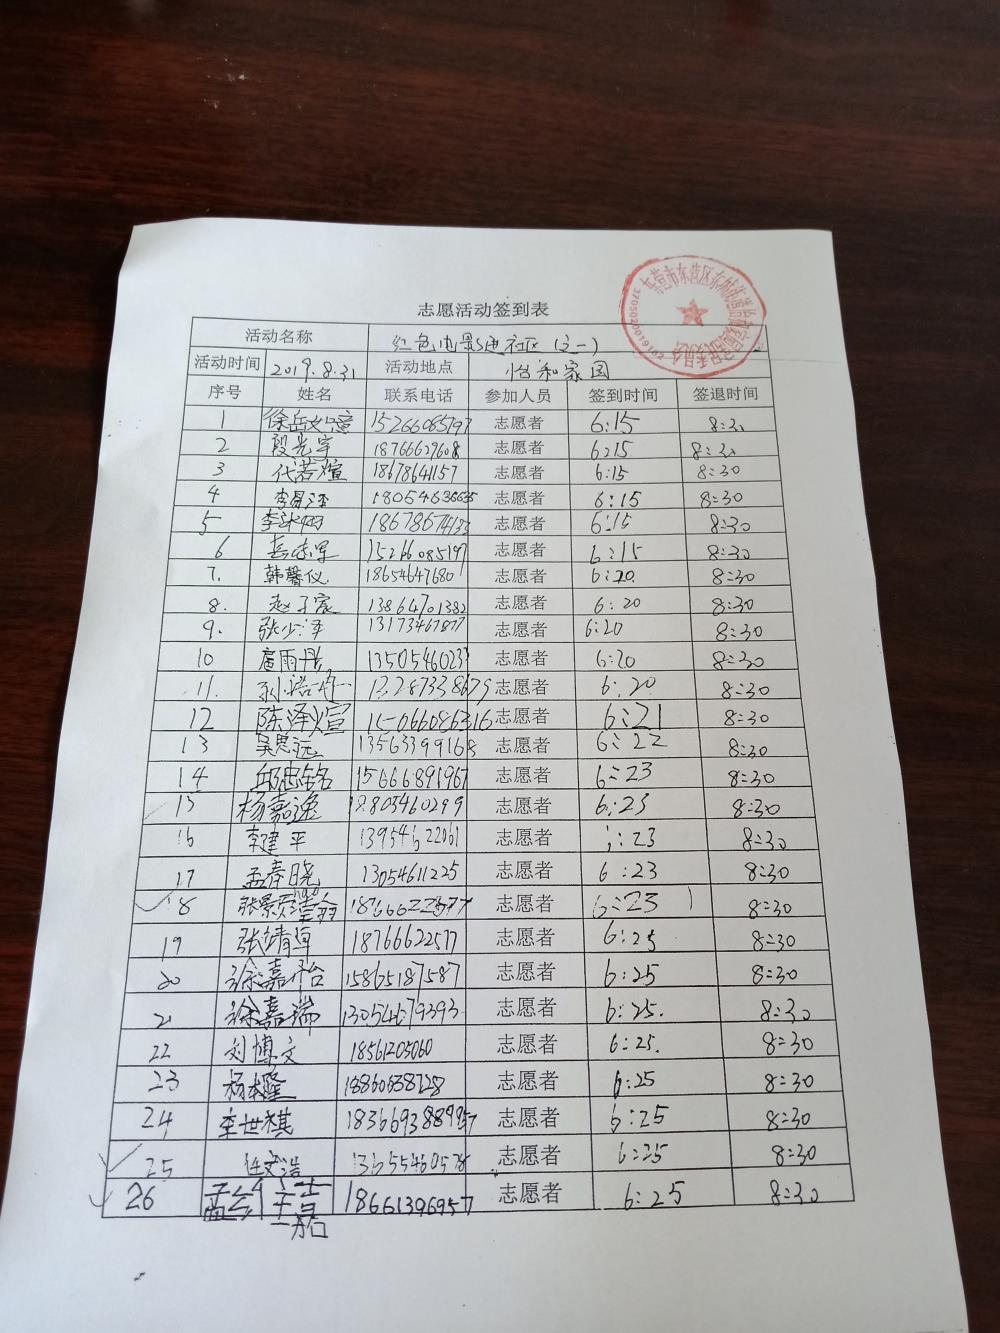 志愿活动签到表
活动名称 红色电影进社区（之一）
活动时间 2019.8.31 活动地点 怡和家园
序号 姓名 联系电话 参加人员 签到时间 签退时间
1 15266065797 志愿者 6:15 8:30
2 段光宇 18766627608 志愿者 6:15 8:30
3 代若煊 18678641157 志愿者 6:15 8:30
4 18054636635 志愿者 6:15 8:30
5 18678674133 志愿者 6:15 8:30
6 15266085197 志愿者 6:15 8:30
7. 韩馨仪 18654647680 志愿者 6:20 8:30
8. 赵子宸 13864701382 志愿者 6:20 8:30
9. 张少泽 13173467877 志愿者 6:20 8:30
10 唐雨彤 13505460233 志愿者 6:20 8:30
11. 志愿者 6:20 8:30
12 陈泽煊 15066086316 志愿者 6:21 8:30
13 吴思远 13563399168 志愿者 6:22 8:30
14 邱忠铭 15666891967 志愿者 6:23 8:30
15 杨嘉逸 志愿者 6:23 8:30
16 李建平 13954622061 志愿者 :23 8:30
17 孟春晓 13054611225 志愿者 6:23 8:30
18 18766622577 志愿者 6:23 8:30
19 张靖卓 18766622577 志愿者 6:25 8:30
20 徐嘉怡 15865187587 志愿者 6:25 8:30
21 徐嘉瑞 13054679393 志愿者 6:25. 8:30
22 刘博文 18561205060 志愿者 6:25. 8:30
23 杨本隆 18860638728 志愿者 6:25 8:30
24 李世祺 志愿者 6:25 8:30
25 任文浩 13655460578 志愿者 6:25 8:30
26 18661396957 志愿者 6:25 8:30
3705020019102